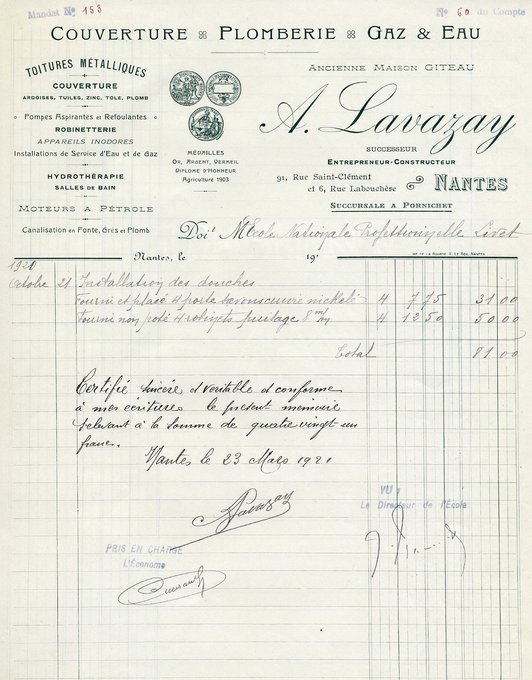 Mandat № 153
№ 60 du Compte
COUVERTURE PLOMBERIE GAZ & EAU
TOITURES MÉTALLIQUES
COUVERTURE
ARDOISES, TUILES, ZINC, TOLE, PLOMB
Pompes Aspirantes et Refoulantes
ROBINETTERIE
APPAREILS INODORES
Installations de Service d'Eau et de Gaz
HYDROTHÉRAPIE
SALLES DE BAIN
MOTEURS A PÉTROLE
Canalisation en Fonte, Grès et Plomb
MÉDAILLES
OR, ARGENT, VERMEIL
DIPLOME D'HONNEUR
Agriculture 1903
ANCIENNE MAISON GITEAU
A. Lavazay
SUCCESSEUR
ENTREPRENEUR-CONSTRUCTEUR
91, RUE SAINT-CLÉMENT
et 6, RUE LABOUCHÈRE
NANTES
SUCCURSALE A PORNICHET
Doit M Ecole Nationale Professionnelle Livet
Nantes, le 19
1920
Octobre 21 Installation des douches
Fourni et placé 4 porte savons cuivre nickelé 4 7 75 31 00
Fourni non posé 4 robinets puisage 8 m/m 4 12 50 50 00
Total 81 00
Certifié sincère et véritable et conforme
à mes écritures le présent mémoire
s'élevant à la somme de quatre vingt un
francs.
Nantes le 23 Mars 1921
A Lavazay
VU :
Le Directeur de l'École
PRIS EN CHARGE
L'Économe